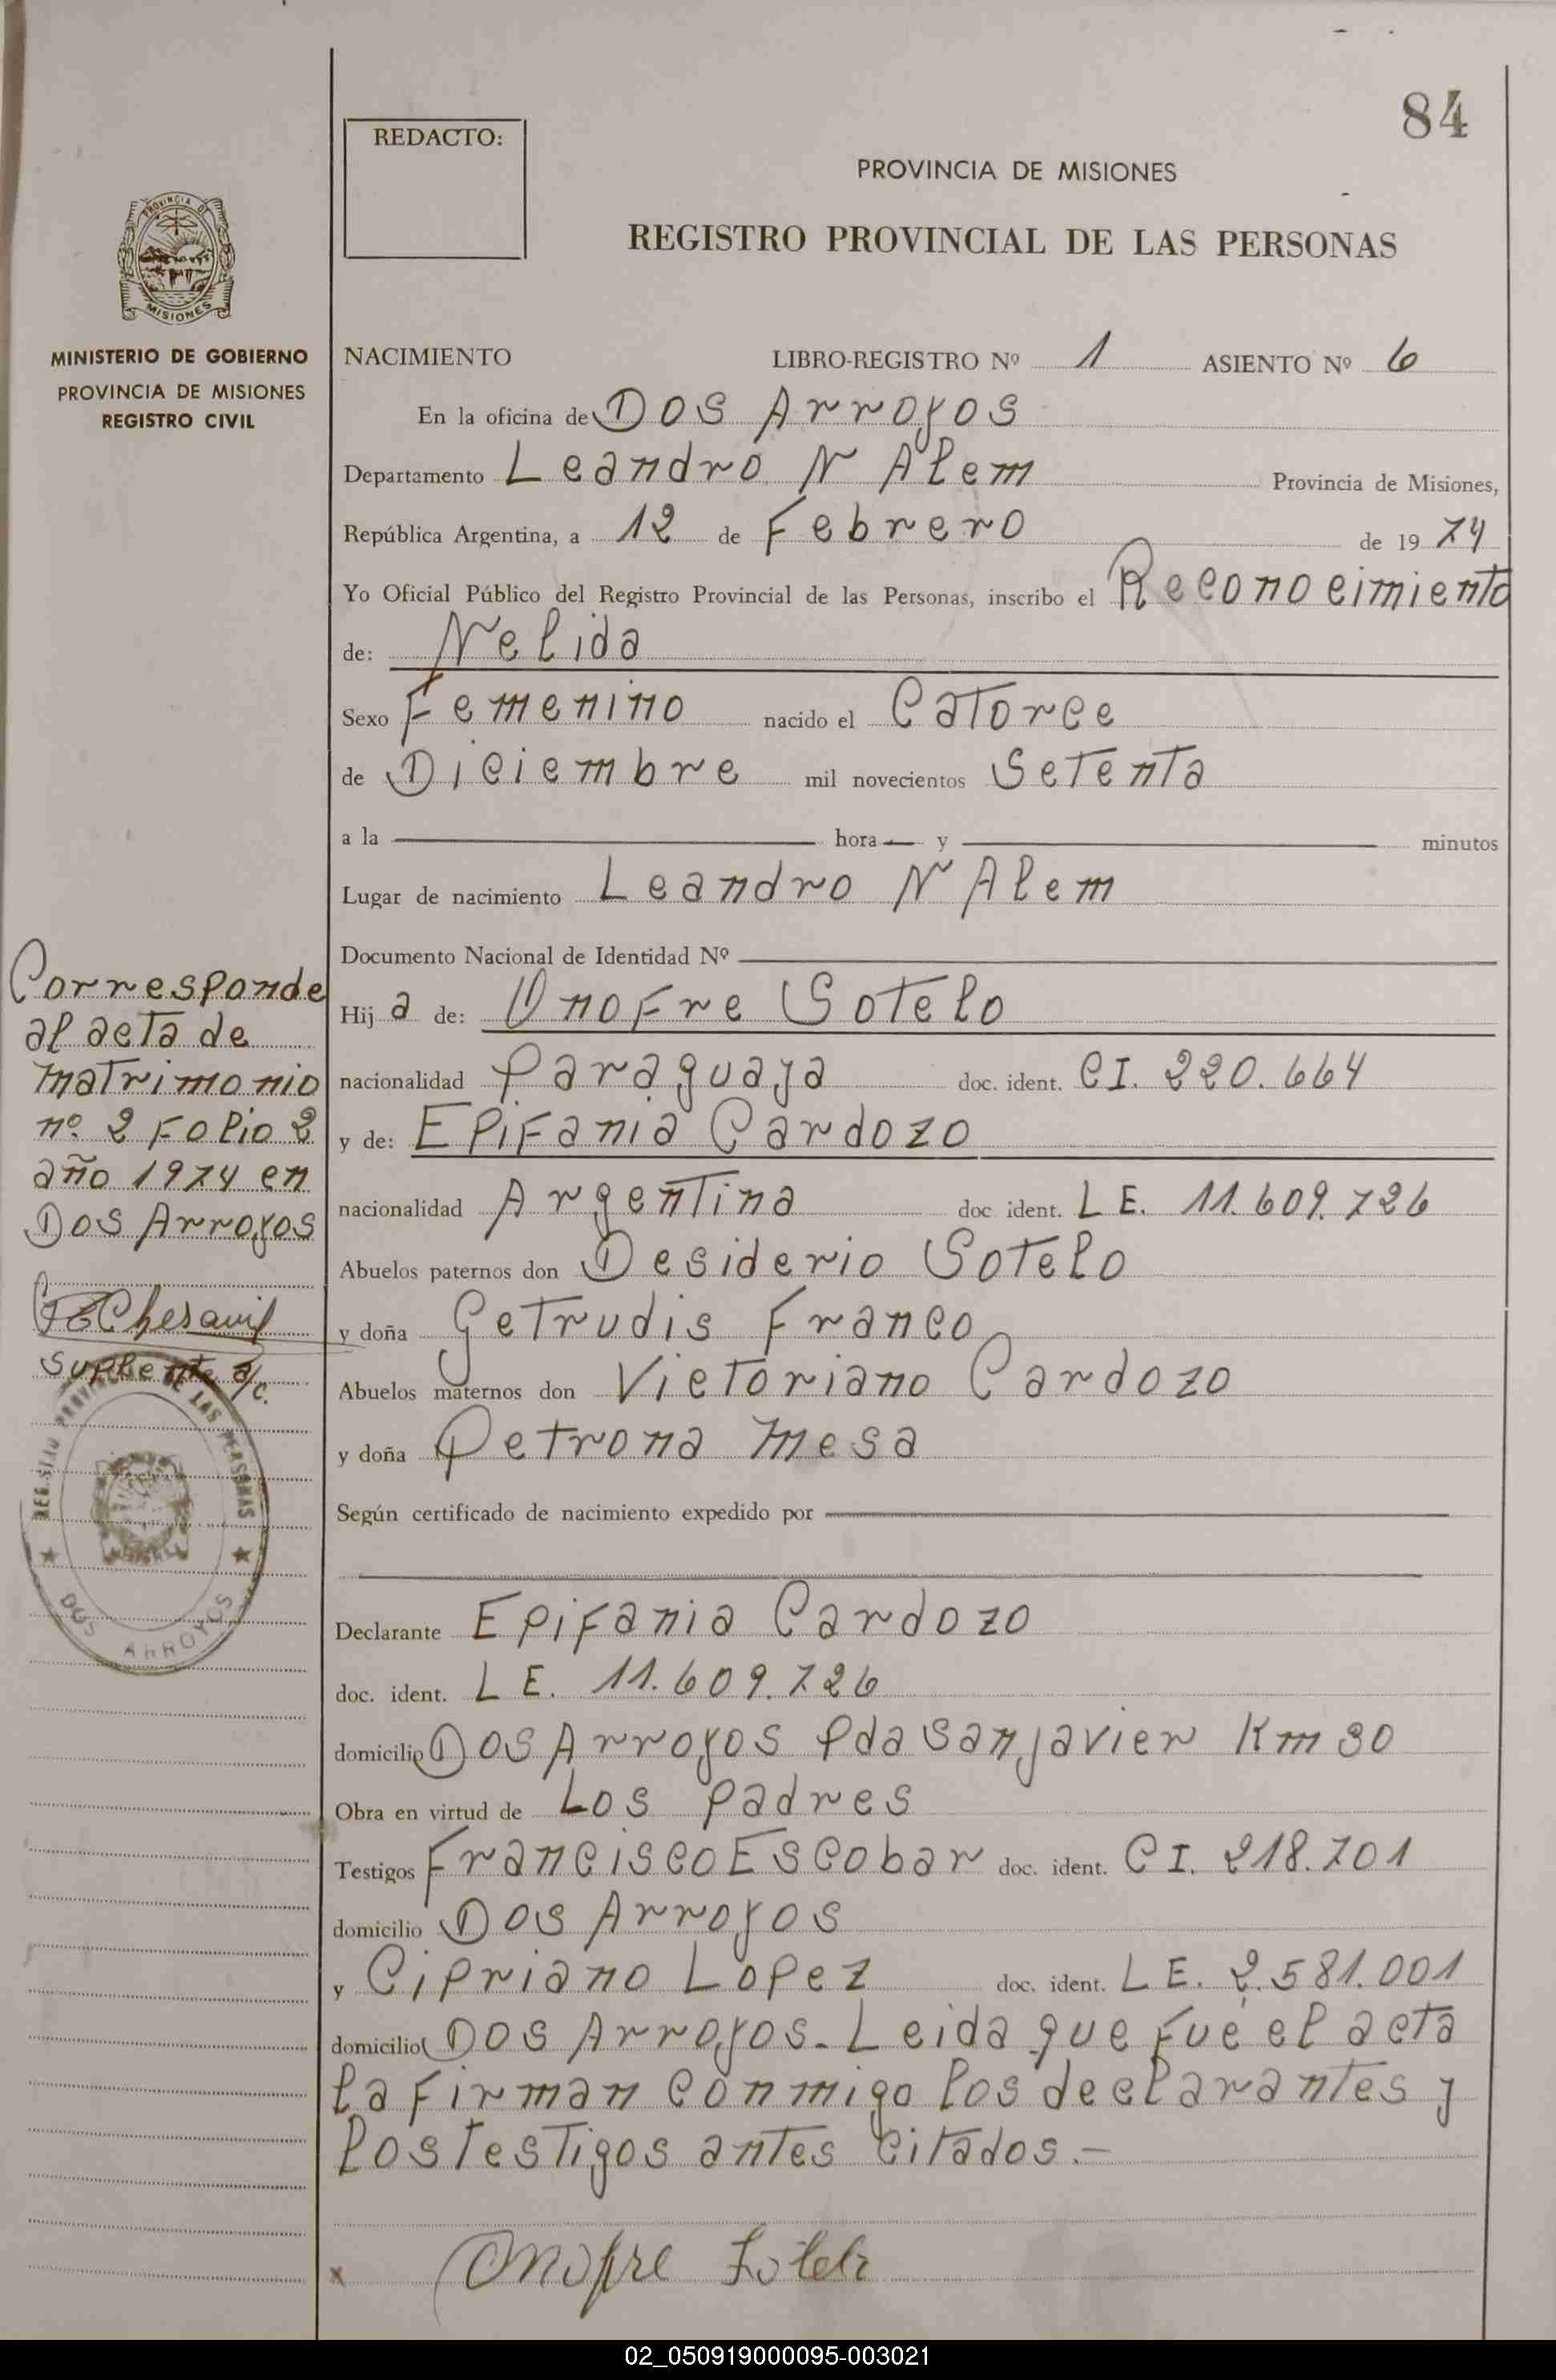 84
REDACTO:
PROVINCIA DE MISIONES
REGISTRO PROVINCIAL DE LAS PERSONAS
PROVINCIA DE
MISIONES
MINISTERIO DE GOBIERNO
PROVINCIA DE MISIONES
REGISTRO CIVIL
NACIMIENTO LIBRO-REGISTRO Nº 1 ASIENTO Nº 6
En la oficina de Dos Arroyos
Departamento Leandro N Alem Provincia de Misiones,
República Argentina, a 12 de Febrero de 19 74
Yo Oficial Público del Registro Provincial de las Personas, inscribo el Reconocimiento
de: Nelida
Sexo Femenino nacido el Catorce
de Diciembre mil novecientos Setenta
a la hora y minutos
Lugar de nacimiento Leandro N Alem
Documento Nacional de Identidad Nº
Hij a de: Onofre Sotelo
nacionalidad Paraguaya doc. ident. CI. 220.664
y de: Epifania Cardozo
nacionalidad Argentina doc. ident. LE. 11.609.726
Abuelos paternos don Desiderio Sotelo
y doña Getrudis Franco
Abuelos maternos don Victoriano Cardozo
y doña Petrona Mesa
Según certificado de nacimiento expedido por
Declarante Epifania Cardozo
doc. ident. LE. 11.609.726
domicilio Dos Arroyos Pda San Javier Km 30
Obra en virtud de Los Padres
Testigos Francisco Escobar doc. ident. CI. 218.701
domicilio Dos Arroyos
y Cipriano Lopez doc. ident. LE. 2.581.001
domicilio Dos Arroyos. Leida que fué el acta
la firman conmigo los declarantes y
los testigos antes citados.-
x Onofre Sotelo
Corresponde
al acta de
matrimonio
nº 2 Folio 2
año 1974 en
Dos Arroyos
Suplente a/c.
REGISTRO PROVINCIAL DE LAS PERSONAS
DOS ARROYOS
02_050919000095-003021